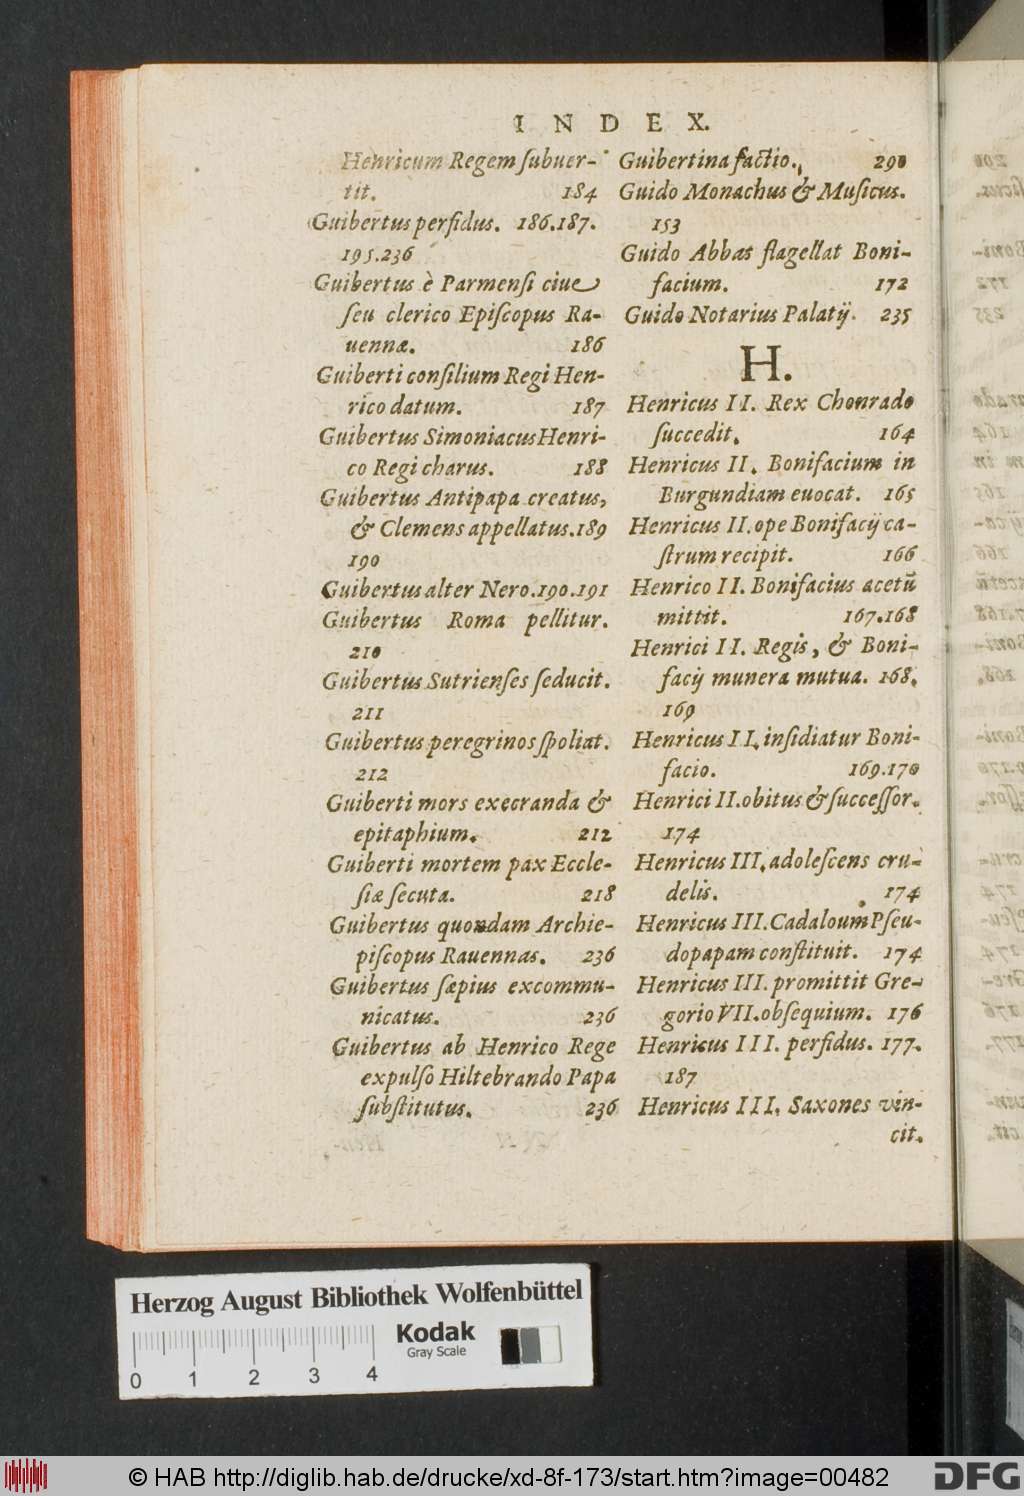 INDEX.
Henricum Regem ſubuer-
tit. 184
Guibertus perfidus. 186.187.
195.236
Guibertus è Parmenſi ciue
ſeu clerico Epiſcopus Ra-
uennæ. 186
Guiberti conſilium Regi Hen-
rico datum. 187
Guibertus Simoniacus Henri-
co Regi charus. 188
Guibertus Antipapa creatus,
& Clemens appellatus. 189
190
Guibertus alter Nero. 190.191
Guibertus Roma pellitur.
210
Guibertus Sutrienſes ſeducit.
211
Guibertus peregrinos ſpoliat.
212
Guiberti mors execranda &
epitaphium. 212
Guiberti mortem pax Eccle-
ſiæ ſecuta. 218
Guibertus quondam Archie-
piſcopus Rauennas. 236
Guibertus ſæpius excommu-
nicatus. 236
Guibertus ab Henrico Rege
expulſo Hiltebrando Papa
ſubſtitutus. 236
Guibertina factio. 290
Guido Monachus & Muſicus.
153
Guido Abbas flagellat Boni-
facium. 172
Guido Notarius Palatij. 235
H.
Henricus II. Rex Chonrado
ſuccedit. 164
Henricus II. Bonifacium in
Burgundiam euocat. 165
Henricus II. ope Bonifacij ca-
ſtrum recipit. 166
Henrico II. Bonifacius acetū
mittit. 167.168
Henrici II. Regis, & Boni-
facij munera mutua. 168.
169
Henricus II. inſidiatur Boni-
facio. 169.170
Henrici II. obitus & ſucceſſor.
174
Henricus III. adoleſcens cru-
delis. 174
Henricus III. Cadaloum Pſeu-
dopapam conſtituit. 174
Henricus III. promittit Gre-
gorio VII. obſequium. 176
Henricus III. perfidus. 177.
187
Henricus III. Saxones vin-
cit.
Herzog August Bibliothek Wolfenbüttel
Kodak
Gray Scale
0 1 2 3 4
© HAB http://diglib.hab.de/drucke/xd-8f-173/start.htm?image=00482
DFG